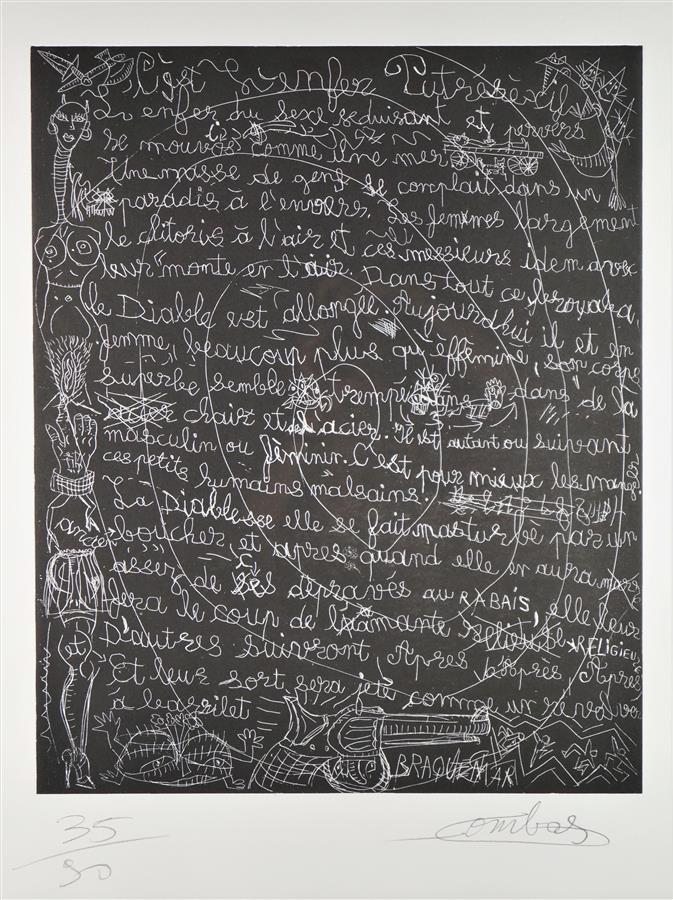 C'est L'enfer Putrescible
L'enfer du sexe séduisant et pervers
se mouvos comme une mer
Une masse de gens se complait dans un
paradis à l'envers. Les femmes largement
le clitoris à l'air et ces messieurs idem avec
leur "monte en l'air. Dans tout ce
le Diable est allongée. Aujourd'hui il et en
femme beaucoup plus qu'efféminé, son corps
superbe semble trempé dans de la
chair et L'acier. Il est autant ou suivant
masculin ou féminin. C'est pour mieux les manger
ces petits humains malsains.
La Diablesse elle se fait masturbe par un
ancien boucher et après quand elle en aura marre
assez de ces dépravés au RABAIS, elle leur
fera le coup de L'amante RELIGIEUSE
et D'autres suivront Apres Apres Apres
Et leur sort sera jeté comme un revolver
à barrilet
BRAQUEMAR
35/90
Combas